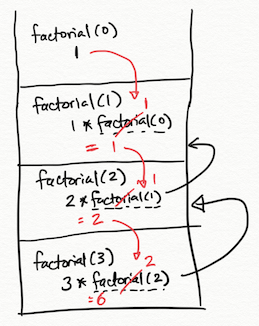 factorial(0)
1
factorial(1)
1
1 * factorial(0)
= 1
factorial(2)
1
2 * factorial(1)
= 2
factorial(3)
2
3 * factorial(2)
=6